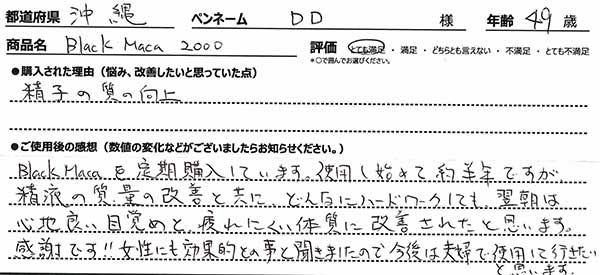 都道府県 沖縄 ペンネーム DD 様 年齢 49 歳
商品名 Black Maca 2000 評価 とても満足 ・ 満足 ・ どちらとも言えない ・ 不満足 ・ とても不満足
*○で囲んでお選びください。
●購入された理由（悩み、改善したいと思っていた点）
精子の質の向上
●ご使用後の感想（数値の変化などがございましたらお知らせください。）
Black Macaを定期購入しています。使用し始めて約半年ですが、
精液の質量の改善と共に、どんなにハードワークしても、翌朝は
心地良い目覚めと、疲れにくい体質に改善されたと思います。
感謝です!! 女性にも効果的との事と聞きましたので今後は夫婦で使用して行きたい
と思います。